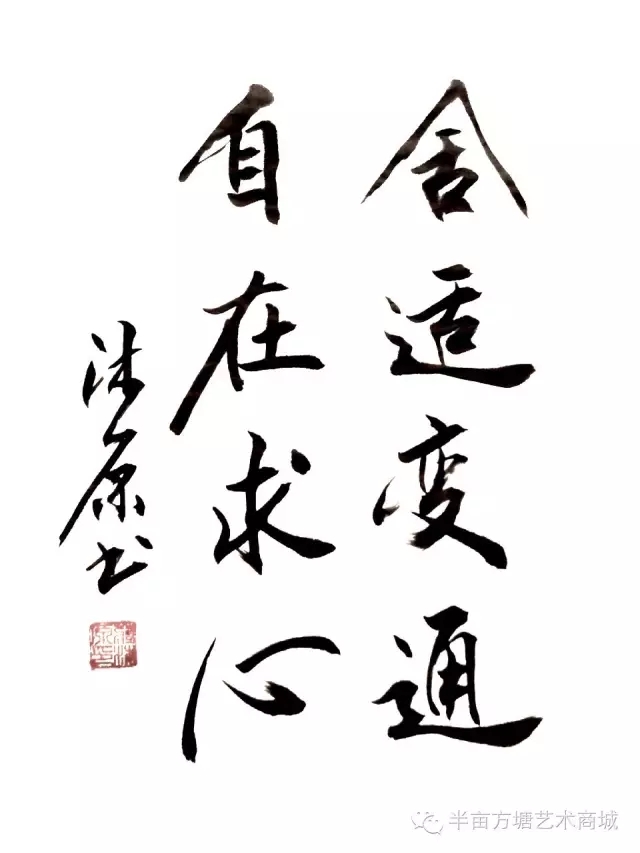 舍适变通
自在求心
原书
半亩方塘艺术商城